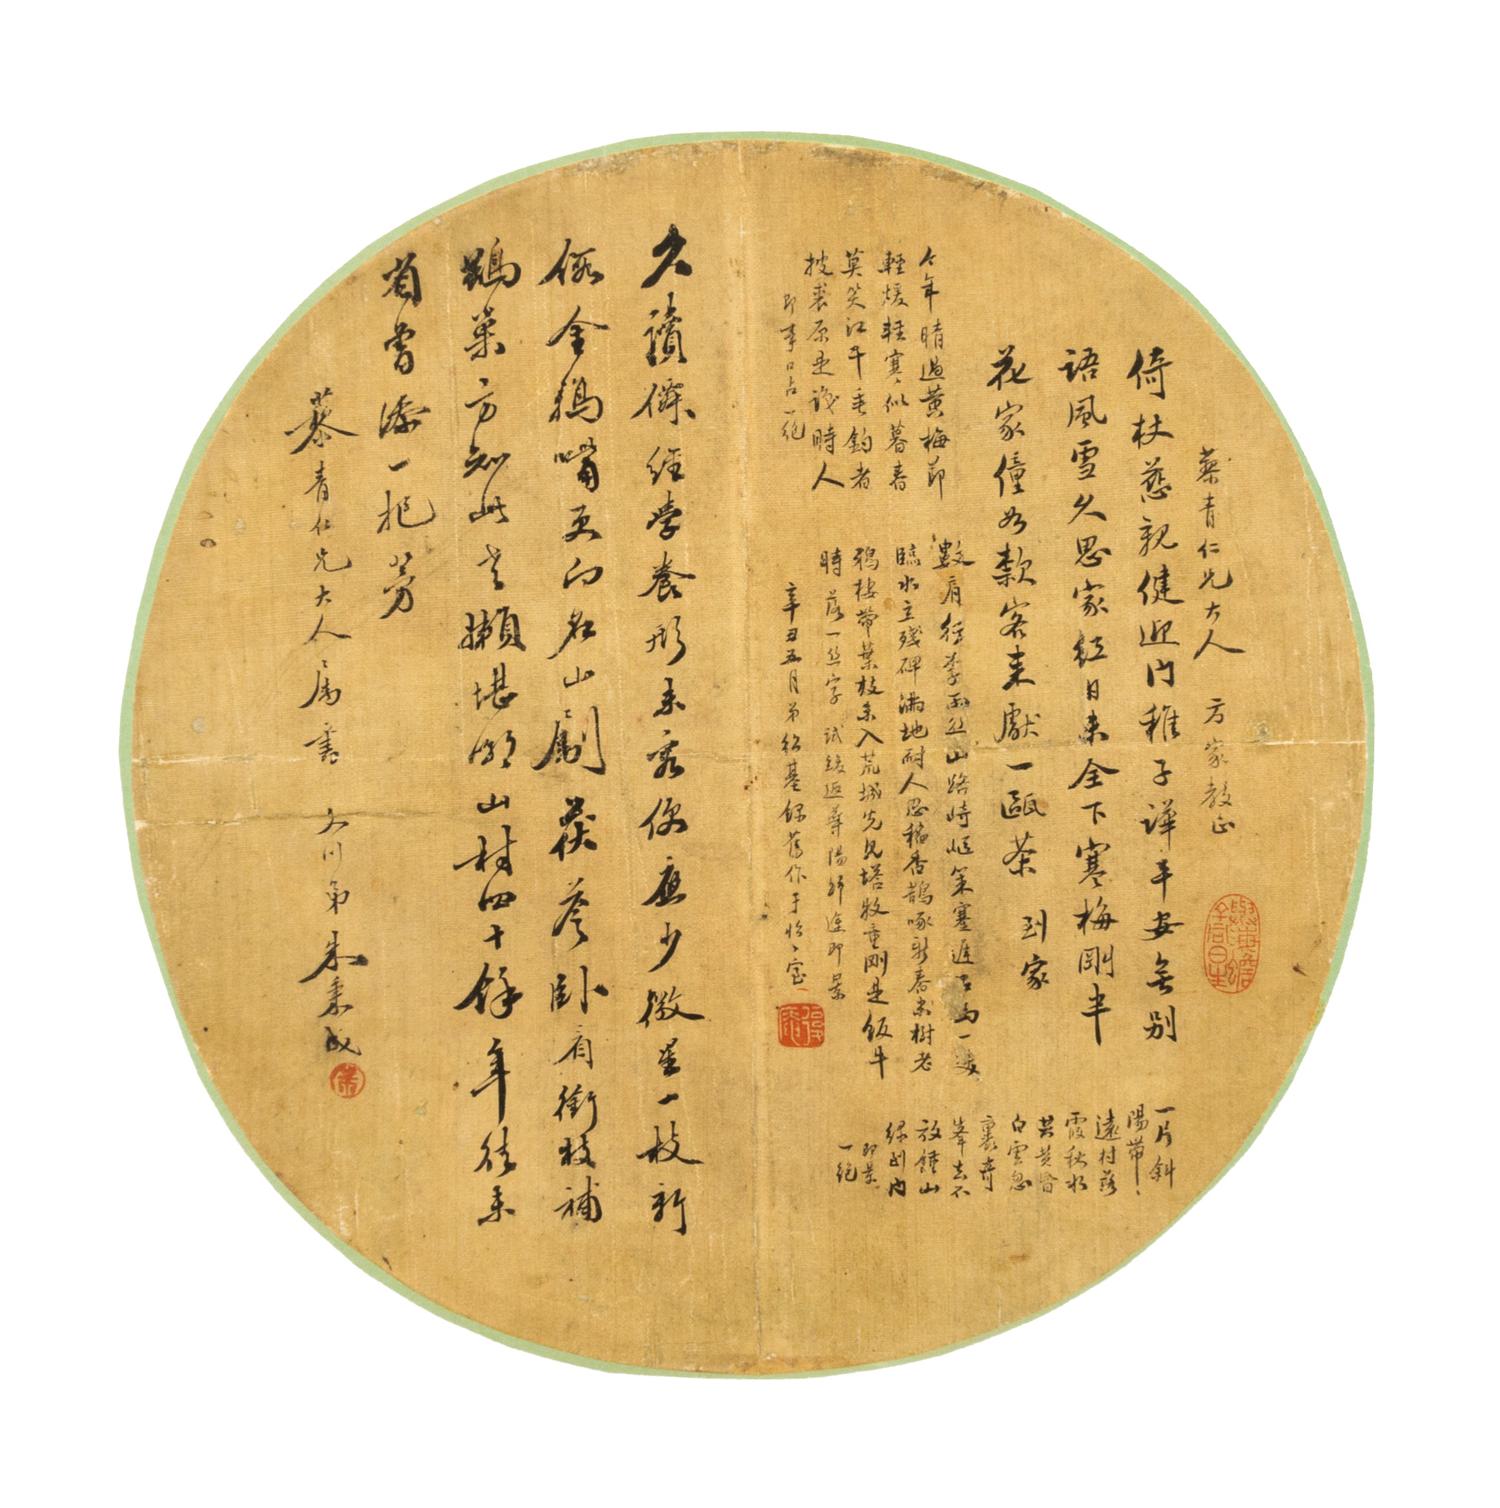 慕青仁兄大人 方家教正
倚杖慈親健迎門稚子譁平安無別
語風雪久思家紅日未全下寒梅剛半
花家僮如款客来獻一甌茶 到家
今年晴過黃梅節
輕煖輕寒似暮春
莫笑江干垂釣者
披裘原是識時人
即事口占一絕
數肩行李雨
山路崎嶇策蹇遲石馬一雙
臨水立殘碑滿地耐人思稻香鵲啄新春樹老
鴉棲帶葉枝未入荒城先見塔牧童剛是飯牛
時 落一字 試後返 陽歸途即景
辛丑五月弟 基錄舊作于怡怡室
一片斜
陽帶
遠村落
霞秋水
共黃昏
白雲忽
裹奇
峯去不
放鍾山
綠到門
即景
一絕
久讀僊經學養形未容便應少微星一枝新
倣金鴉嘴更向名山劚茯苓卧看銜枝補
鵲巢方知此老嬾堪嘲山村四十餘年往来
省曾添一把茅
慕青仁兄大人屬書 弟朱秉成